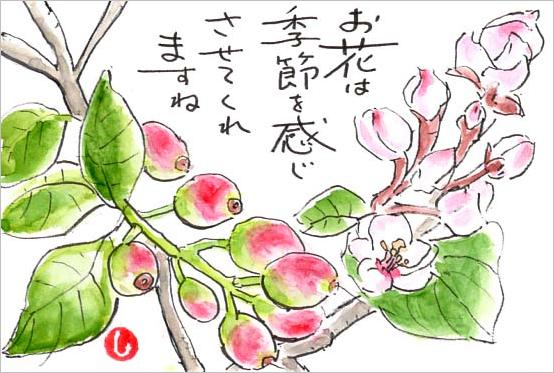 お花は
季節を感じ
させてくれ
ますね
し